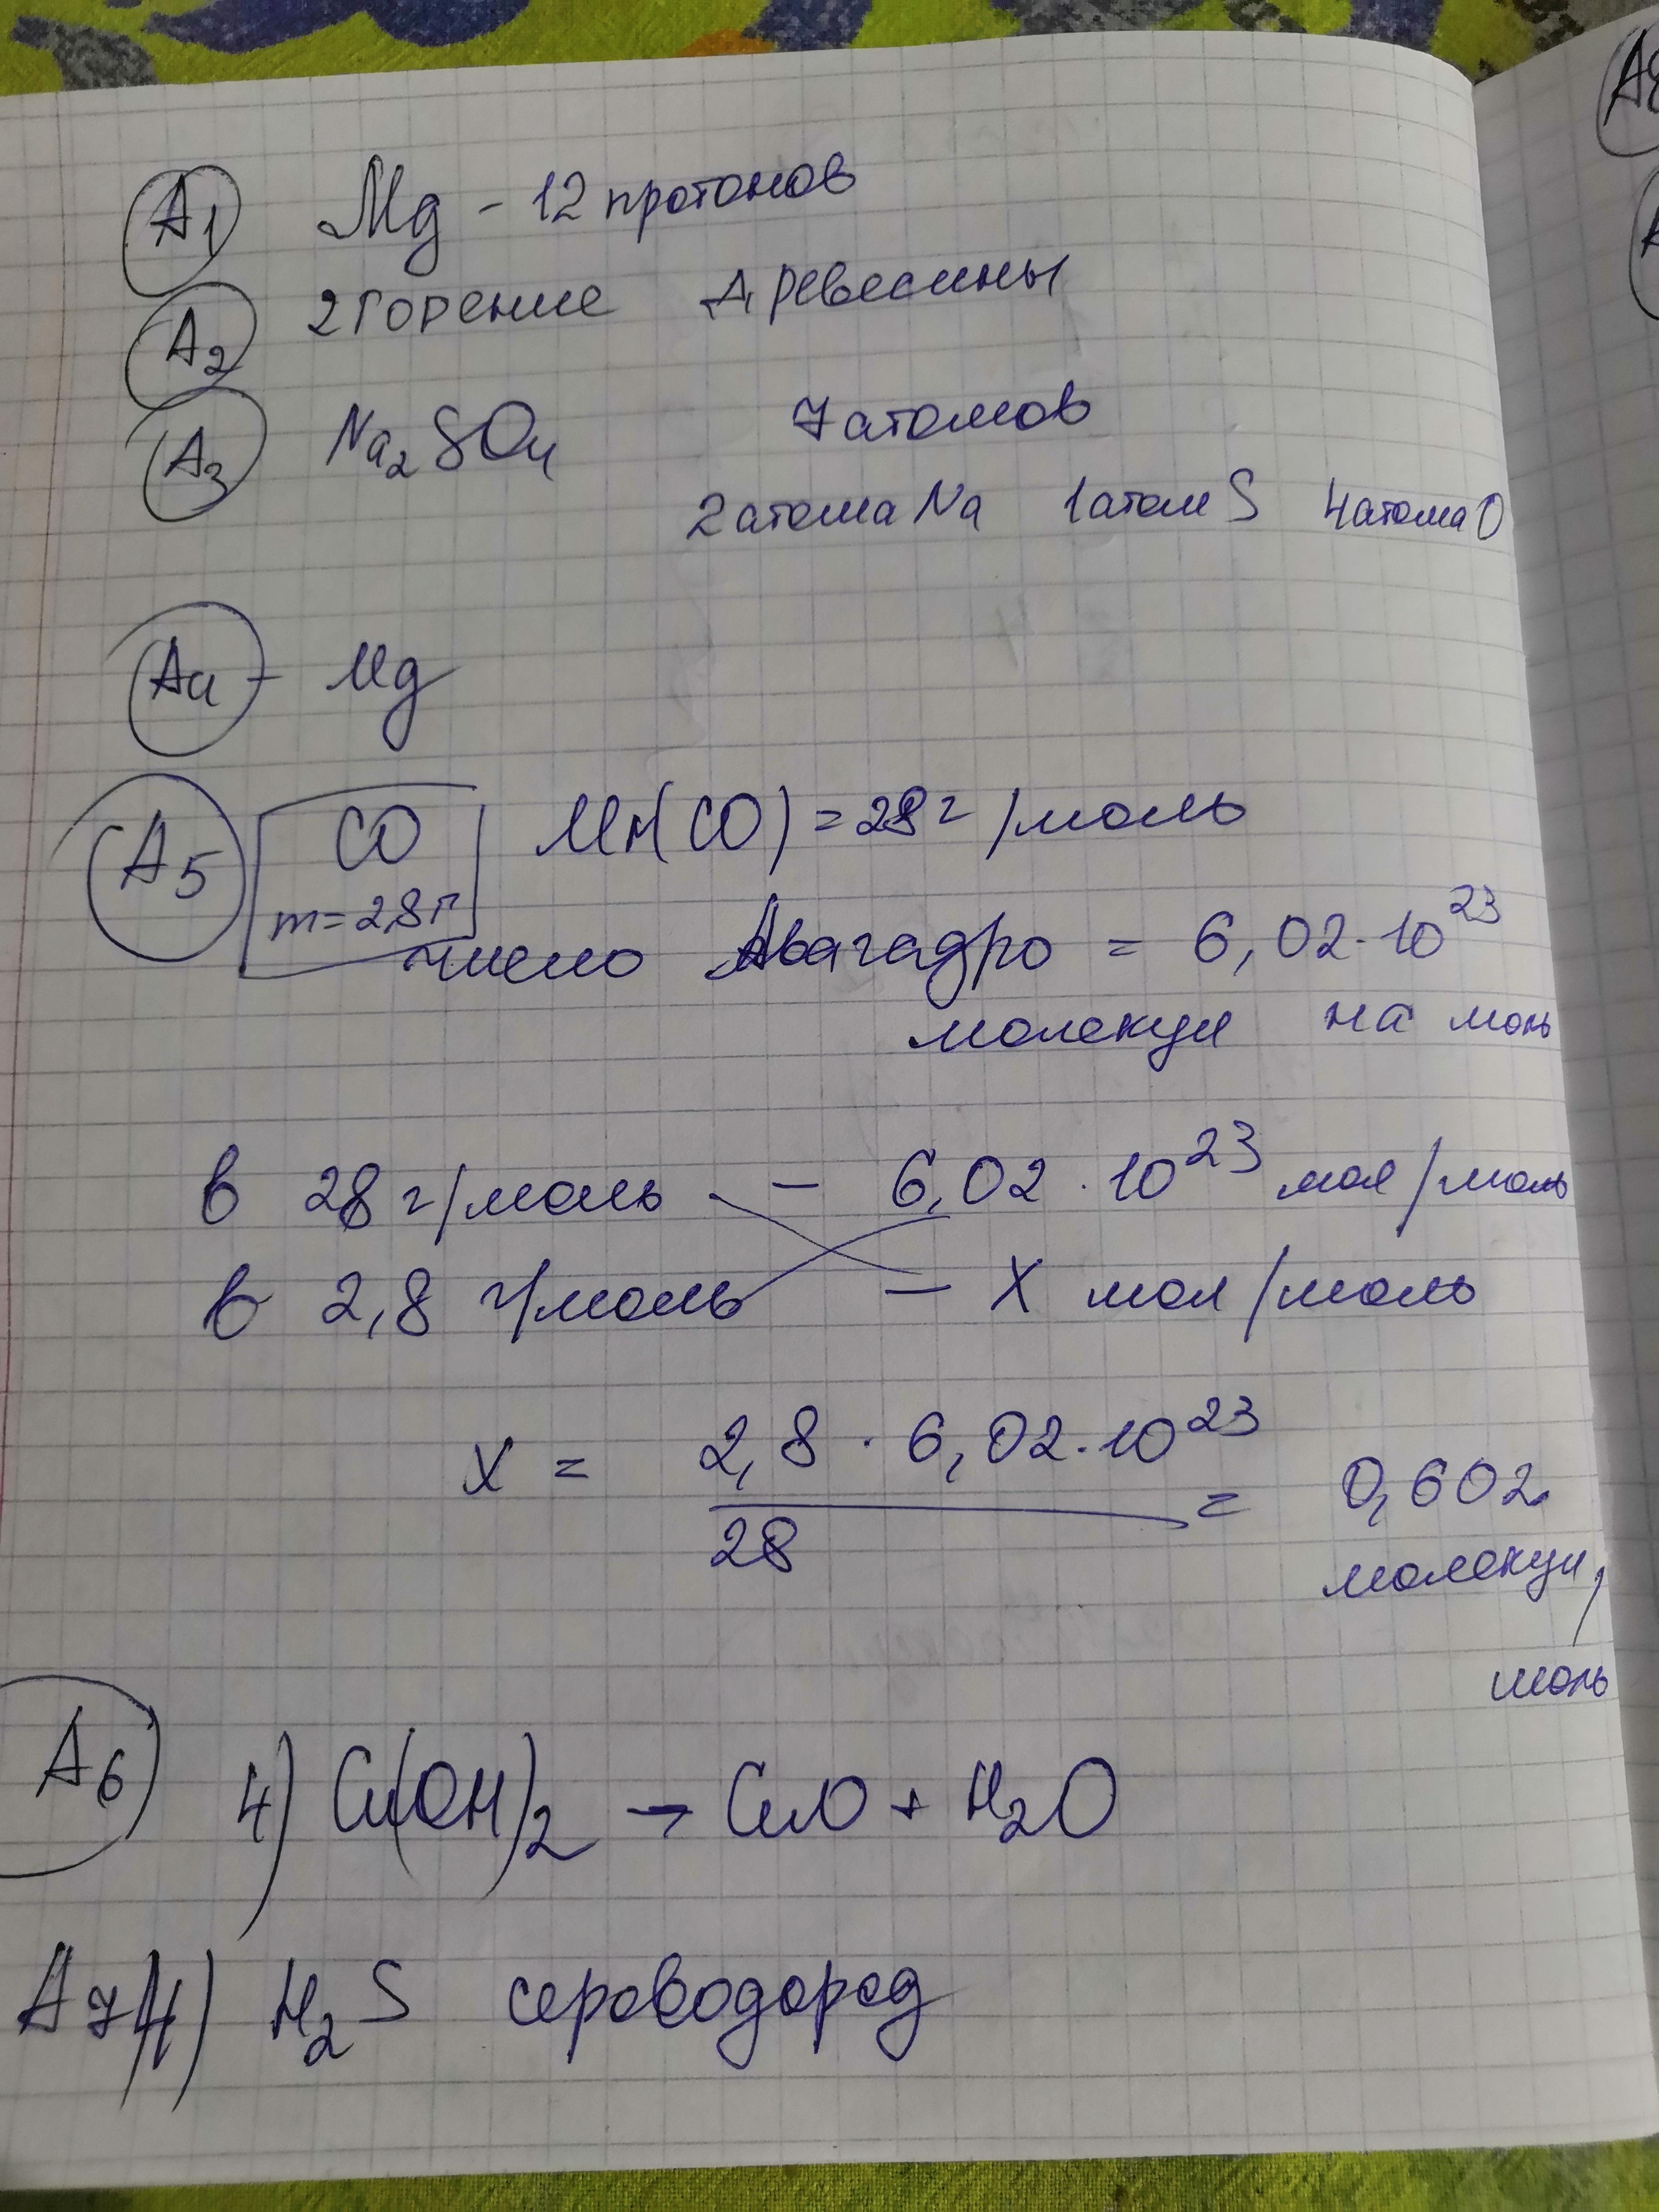 A1 Mg - 12 протонов
A2 2 горение древесины
A3 Na₂SO₄ 7 атомов
2 атома Na 1 атом S 4 атома O
A4 - Mg
A5 CO Mr(CO) = 28 г/моль
m = 2,8 г
число Авагадро = 6,02 · 10²³
молекул на моль
в 28 г/моль - 6,02 · 10²³ мол/моль
в 2,8 г/моль - X мол/моль
X = 2,8 · 6,02 · 10²³ / 28 = 0,602
молекул/
моль
A6 4) Cu(OH)₂ → CuO + H₂O
A7 4) H₂S сероводород
A8